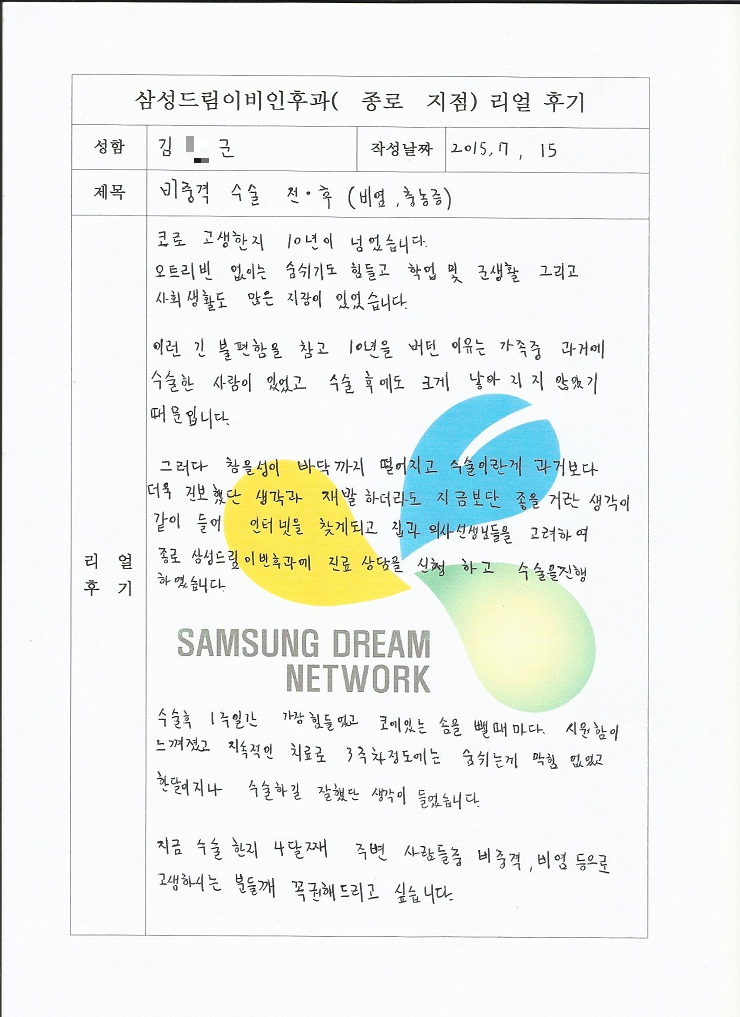 삼성드림이비인후과( 종로 지점) 리얼 후기
성함 김 군 작성날짜 2015, 7, 15
제목 비중격 수술 전·후 (비염, 축농증)
코로 고생한지 10년이 넘었습니다.
오트리빈 없이는 숨쉬기도 힘들고 학업 및 군생활 그리고
사회생활도 많은 지장이 있었습니다.
이런 긴 불편함을 참고 10년을 버틴 이유는 가족중 과거에
수술한 사람이 있었고 수술 후에도 크게 낳아 지지 않았기
때문입니다.
그러다 참을성이 바닥까지 떨어지고 수술이란게 과거보다
더욱 진보했단 생각과 재발 하더라도 지금보단 좋을 거란 생각이
같이 들어 인터넷을 찾게되고 집과 의사선생님들을 고려하여
종로 삼성드림이빈후과에 진료 상담을 신청 하고 수술을진행
하였습니다.
리 얼
후 기
SAMSUNG DREAM
NETWORK
수술후 1주일간 가장힘들었고 코에있는 솜을 뺄때마다. 시원함이
느껴졌고 지속적인 치료로 3주차정도에는 숨쉬는게 막힘 없었고
한달이지나 수술하길 잘했단 생각이 들었습니다.
지금 수술 한지 4달째 주변 사람들중 비중격, 비염 등으로
고생하시는 분들깨 꼭권해드리고 싶습니다.